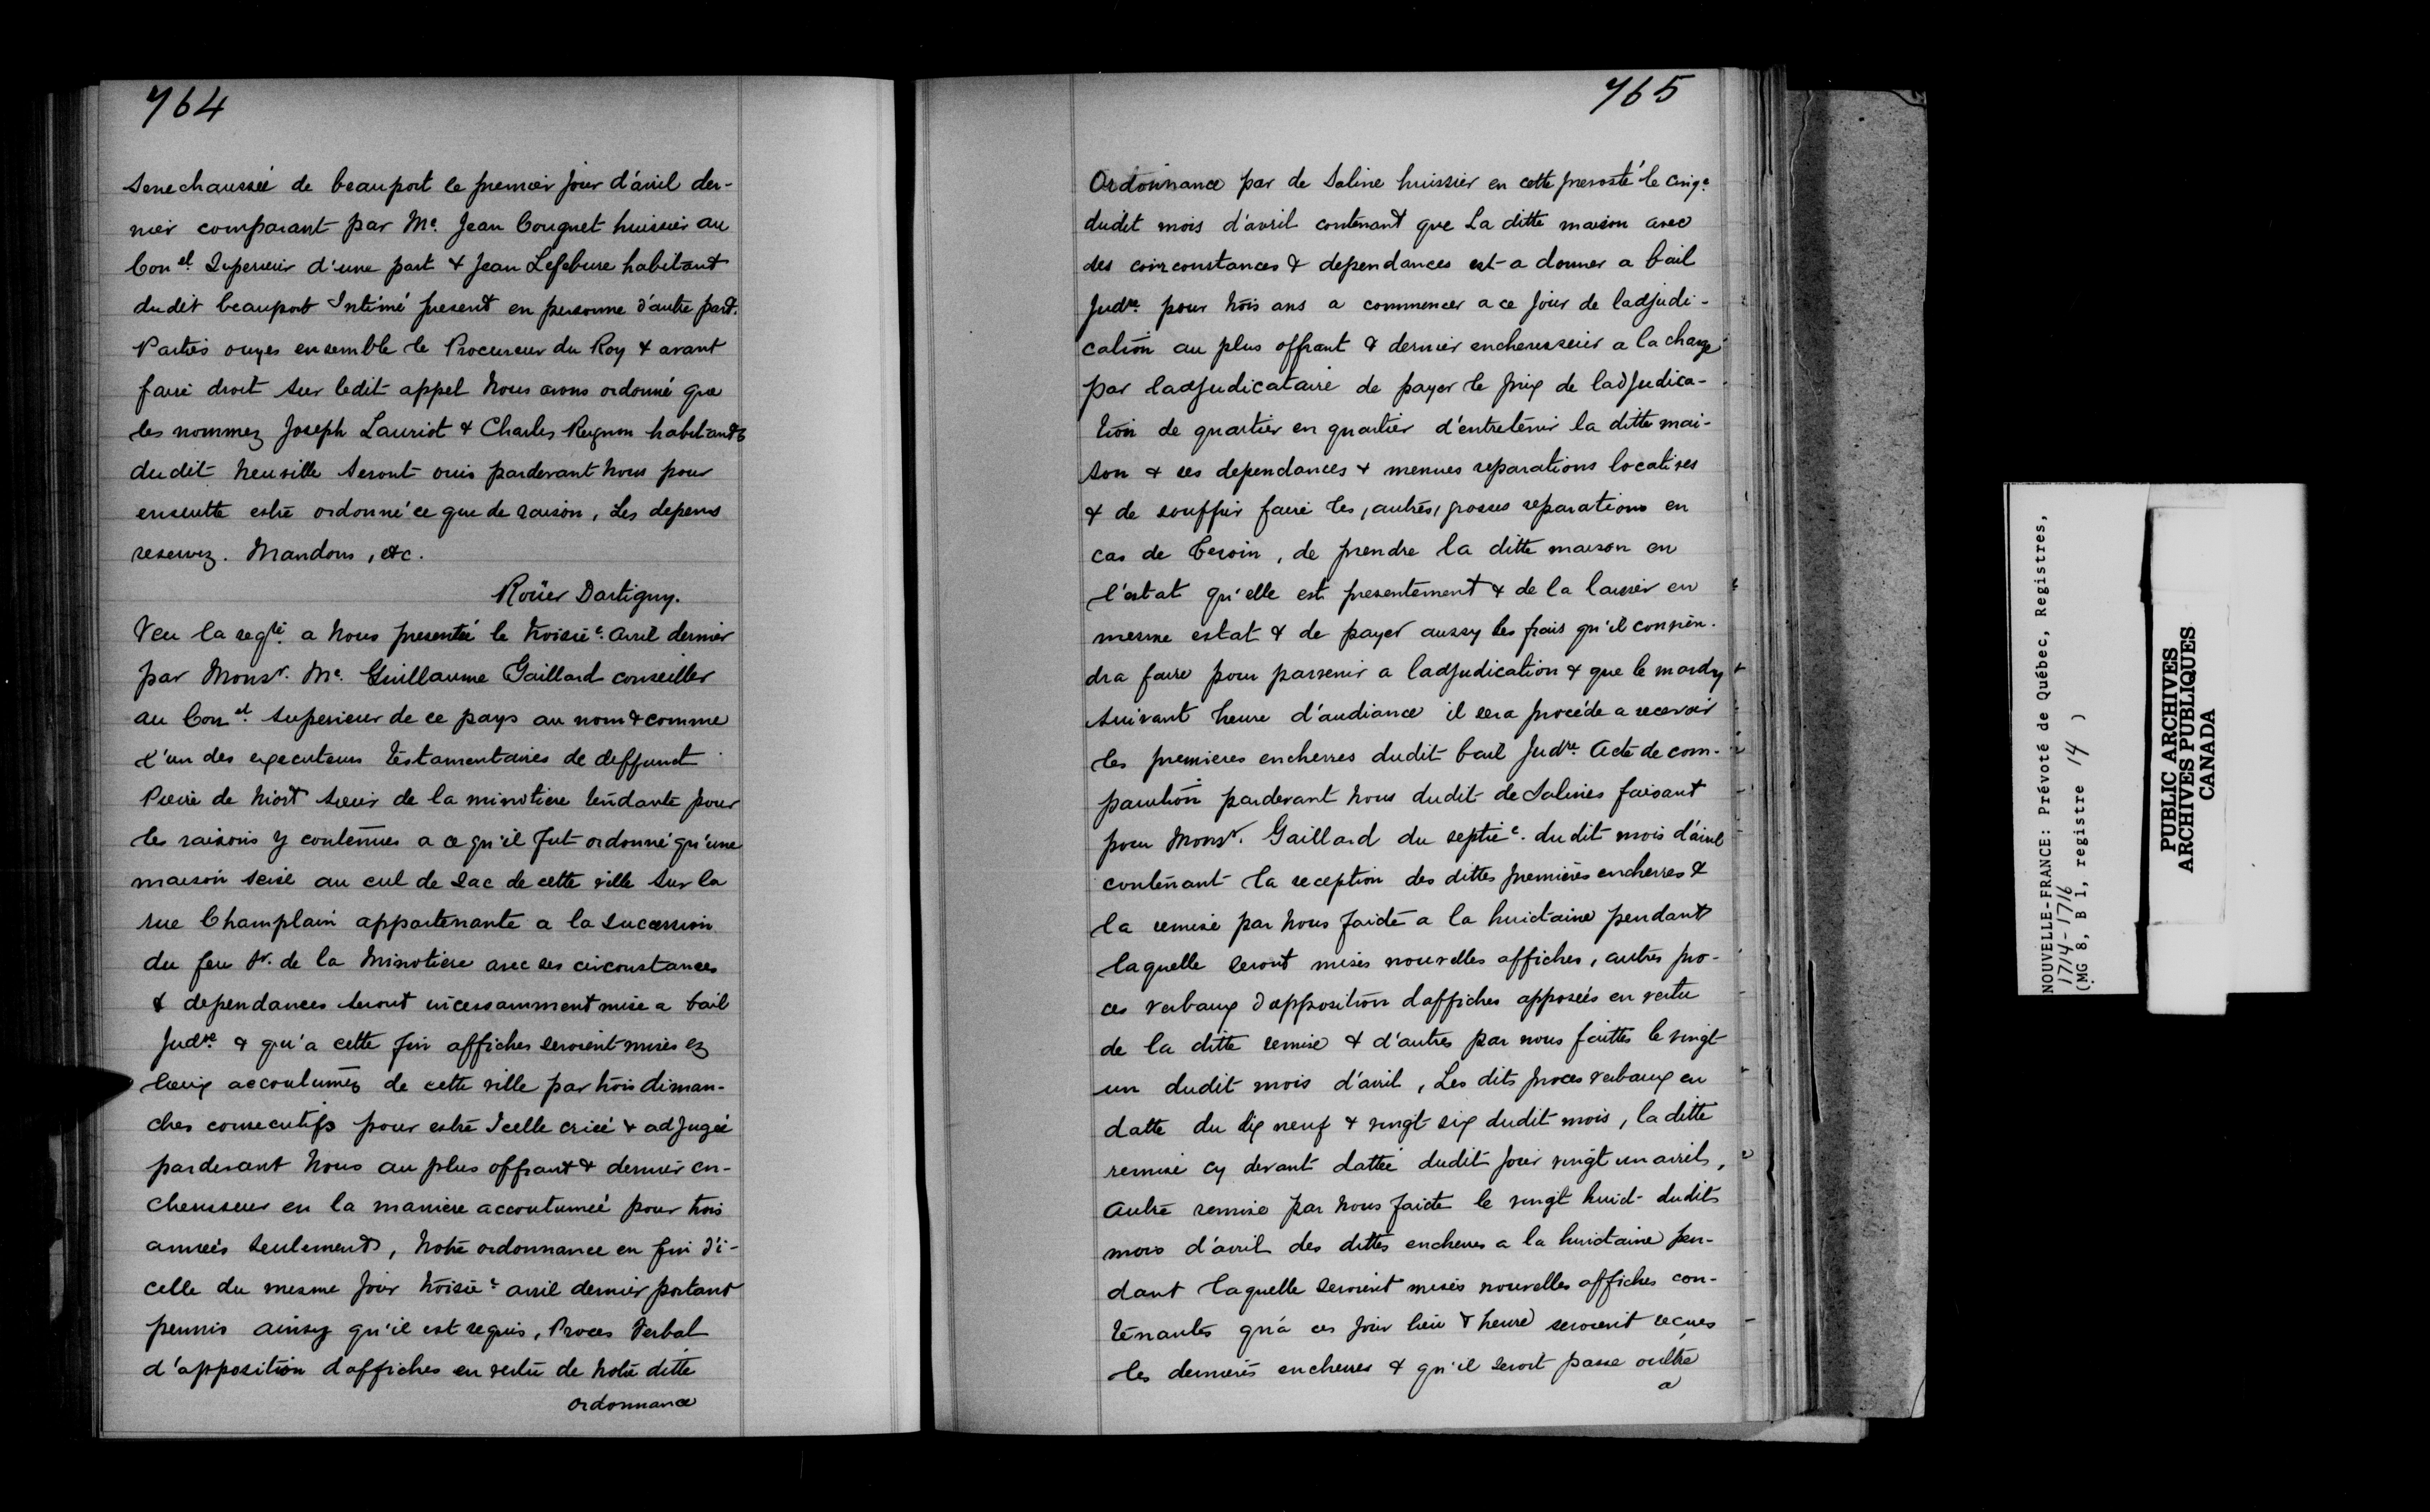 764
Senechaussée de beauport le premier jour d'avril der-
nier comparant par Me. Jean Congnet huissier au
Con el. Superieur d'une part & Jean Lefebure habitant
dudit beauport Intimé present en personne d'autre part.
Parties ouyes ensemble le Procureur du Roy & avant
faire droit sur ledit appel Nous avons ordonné que
les nommez Joseph Lauriot & Charles Regnon habitants
dudit Neuville Seront ouis pardevant Nous pour
ensuitte estre ordonné ce que de raison, Les depens
reservez. Mandons, etc.
Roüer Dartigny.
Veu la reqte. a Nous presentée le troisie. avril dernier
par Monsr. Me. Guillaume Gaillard conseiller
au Con el. Superieur de ce pays au nom & comme
l'un des executeurs testamentaires de deffunt
Pierre de Niort Sieur de la minotiere tendante pour
les raisons y contenues a ce qu'il fut ordonné qu'une
maison Seise au cul de Sac de cette ville Sur la
rue Champlain appartenante a la Succession
du feu Sr. de la Minotiere avec ses circonstances
& dependances Seront incessamment mise a bail
Judre & qu'a cette fin affiches seroient mises ez
lieux accoutumez de cette ville par trois diman-
ches consecutifs pour estre Icelle criée & adjugée
pardevant Nous au plus offrant & dernier en-
cherisseur en la maniere accoutumée pour trois
années Seulement, Notre ordonnance en fin d'i-
celle du mesme jour troisie. avril dernier portant
permis ainsy qu'il est requis, Proces Verbal
d'apposition d'affiches en vertu de Notre ditte
ordonnance
765
Ordonnance par de Saline huissier en cette prevosté le cinqe.
dudit mois d'avril contenant que La ditte maison avec
des coirconstances & dependances est a donner a bail
Judre. pour trois ans a commencer a ce jour de ladjudi-
cation au plus offrant & dernier encherisseur a la charge
par ladjudicataire de payer le prix de ladjudica-
tion de quartier en quartier d'entretenir la ditte mai-
son & ses dependances & menues reparations locatives
& de souffrir faire les, autres, grosses reparations en
cas de besoin, de prendre la ditte maison en
l'estat qu'elle est presentement & de la laisser en
mesme estat & de payer aussy les frais qu'il convien-
dra faire pour parvenir a ladjudication & que le mardy
suivant heure d'audiance il sera procédé a recevoir
les premieres encherres dudit bail Judre. Acte de com-
parution pardevant Nous dudit de Salines faisant
pour Monsr. Gaillard du septie. du dit mois d'avril
contenant la reception des dittes premieres encherres &
la remise par Nous faicte a la huictaine pendant
laquelle seront mises nouvelles affiches, autres pro-
ces verbaux d'apposition d'affiches apposées en vertu
de la ditte remise & d'autres par nous faittes le vingt
un dudit mois d'avril, Les dits proces verbaux en
datte du dix neuf & vingt six dudit mois, la ditte
remise cy devant dattée dudit jour vingt un avril,
Autre remise par Nous faicte le vingt huict dudit
mois d'avril des dittes encheres a la huictaine pen-
dant laquelle seroient mises nouvelles affiches con-
tenantes qu'a ces jour lieu & heure seroient recues
les dernieres encherres & qu'il seroit passe oultre
a
NOUVELLE-FRANCE: Prévoté de Québec, Registres,
1714-1716
(MG 8, B 1, registre 14 )
PUBLIC ARCHIVES
ARCHIVES PUBLIQUES
CANADA